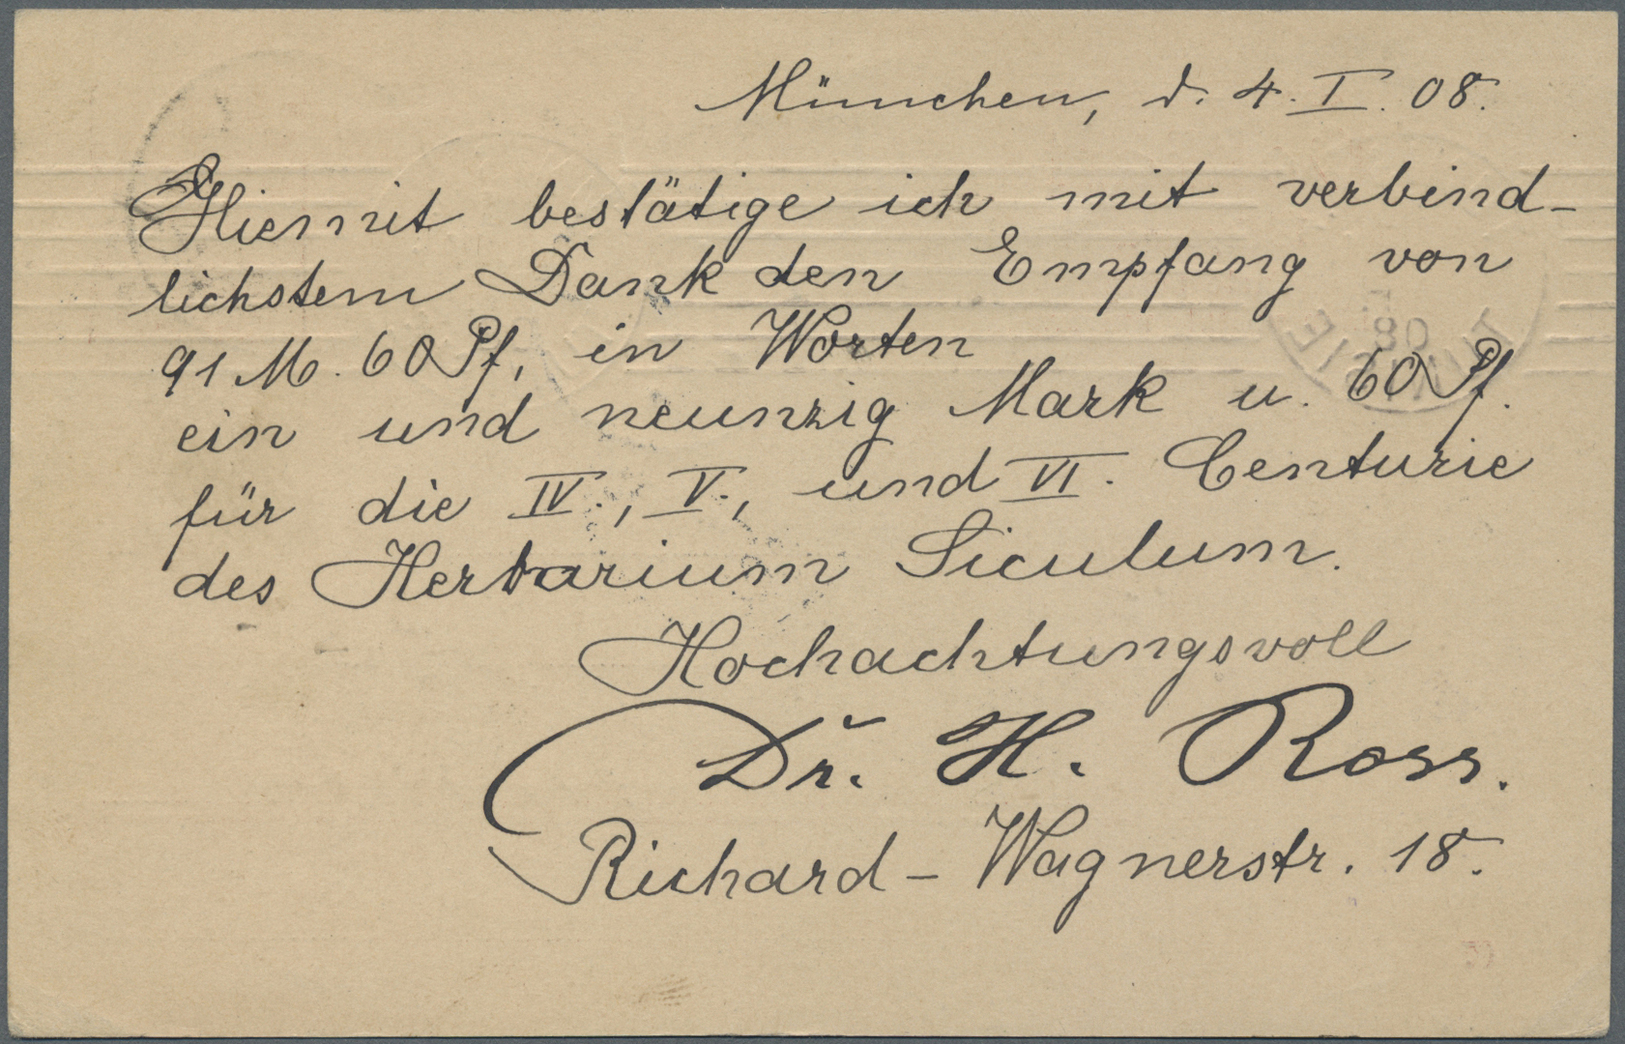 München, d. 4. I. 08.
Hiermit bestätige ich mit verbind-
lichstem Dank den Empfang von
91 M. 60 Pf, in Worten
ein und neunzig Mark u. 60 Pf.
für die IV., V., und VI. Centurie
des Herbarium Siculum.
Hochachtungsvoll
Dr. H. Ross.
Richard-Wagnerstr. 18.